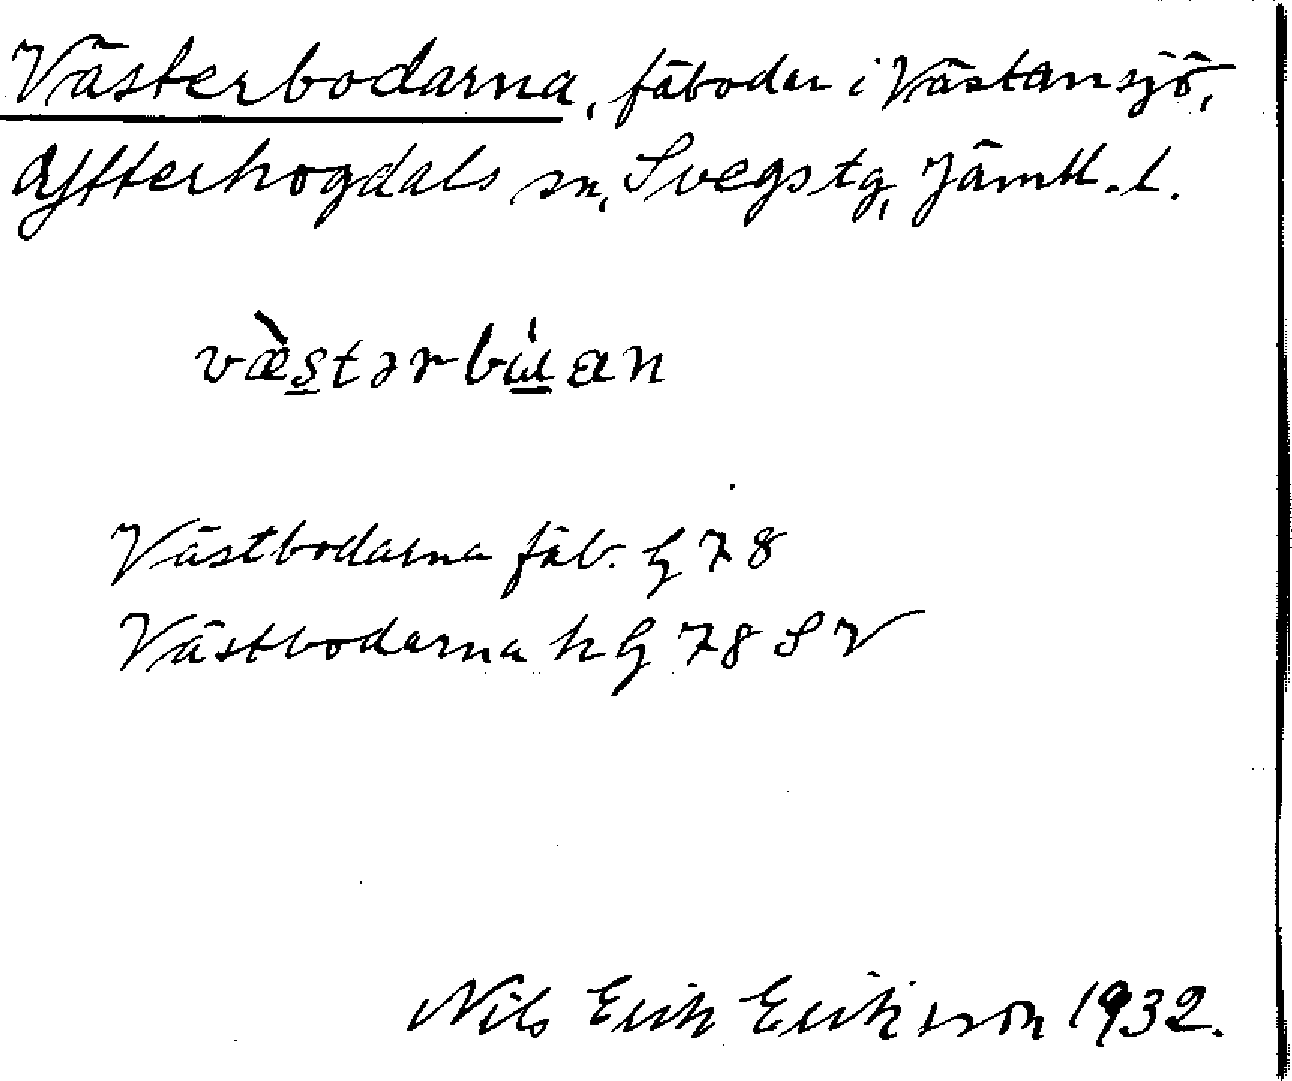 Västerbodarna, fäbodar i Västansjö,
Ytterhogdals sn, Svegs tg, Jämtl. l.
Västbodarna fäb. G 78
Västbodarna h G 78 SV
Nils Erik Eriksson 1932.